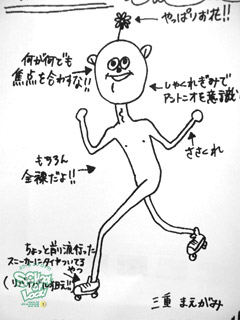 やっぱりお花!!
何が何でも
焦点を合わすな!!
しゃくれぎみで
アントニオを意識!
ささくれ
もちろん
全裸だよ!!
ちょっと前流行った
スニーカーにタイヤついてる
やつ
三重 まえがみ